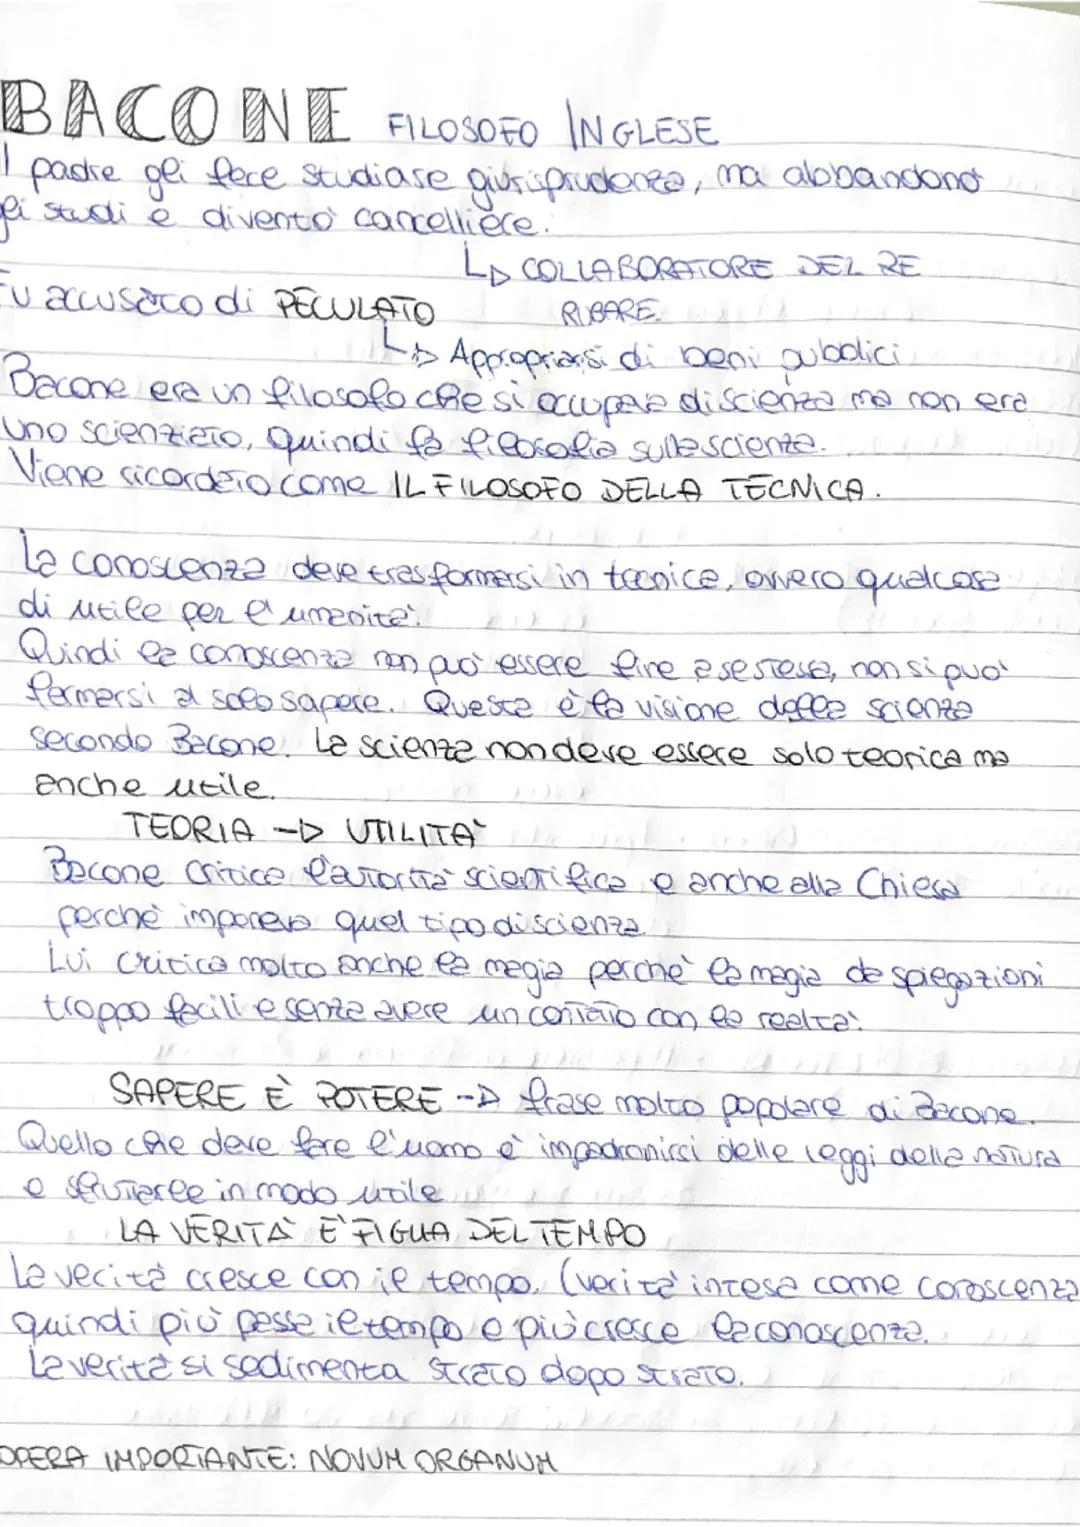 BACONE FILOSOFO INGLESE
l padre gli fece studiare giurisprudenza, ma abbandonò
gli studi e diventò cancelliere.
COLLABORATORE DEL RE
Fu accusato di PECULATO RUBARE.
Appropriarsi di beni pubblici
Bacone era un filosofo che si occupava di scienza ma non era
uno scienziato, quindi fa filosofia sulla scienza.
Viene ricordato come IL FILOSOFO DELLA TECNICA.
La conoscenza deve trasformarsi in tecnica, ovvero qualcosa
di utile per l'umanità.
Quindi la conoscenza non può essere fine a se stessa, non si può
fermarsi al solo sapere. Questa è la visione della scienza
secondo Bacone. La scienza non deve essere solo teorica ma
anche utile.
TEORIA → UTILITÀ
Bacone critica l'autorità scientifica e anche alla Chiesa
perché imponeva quel tipo di scienza
Lui critica molto anche la magia perché la magia da spiegazioni
troppo facili e senza avere un contatto con la realtà.
SAPERE È POTERE → frase molto popolare di Bacone.
Quello che deve fare l'uomo è impadronirsi delle leggi della natura
e sfruttarle in modo utile
LA VERITÀ È FIGUA DEL TEMPO
La verità cresce con il tempo. (verità intesa come conoscenza
quindi più passa il tempo e più cresce la conoscenza.
La verità si sedimenta strato dopo strato.
OPERA IMPORTANTE: NOVUM ORGANUM